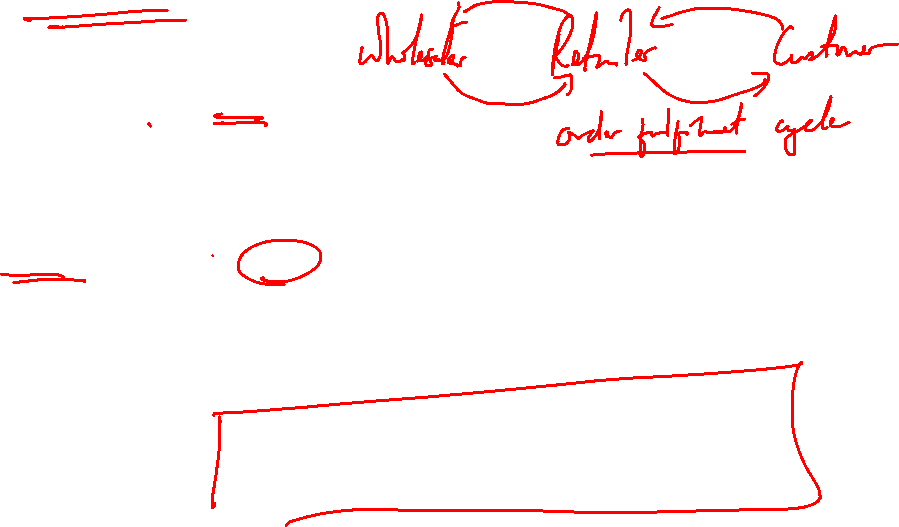 Wholesaler Retailer Customer
order fulfilment cycle